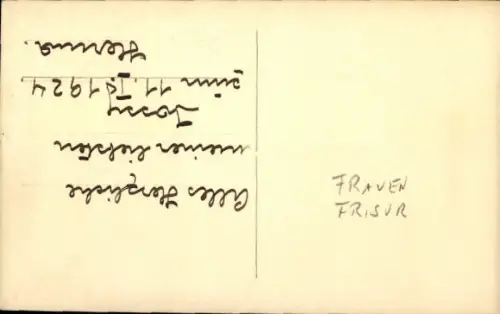 Alles Herzliche
meiner liebsten
Jossy
zum 11. II. 1924
Herma.
FRAUEN
FRISUR